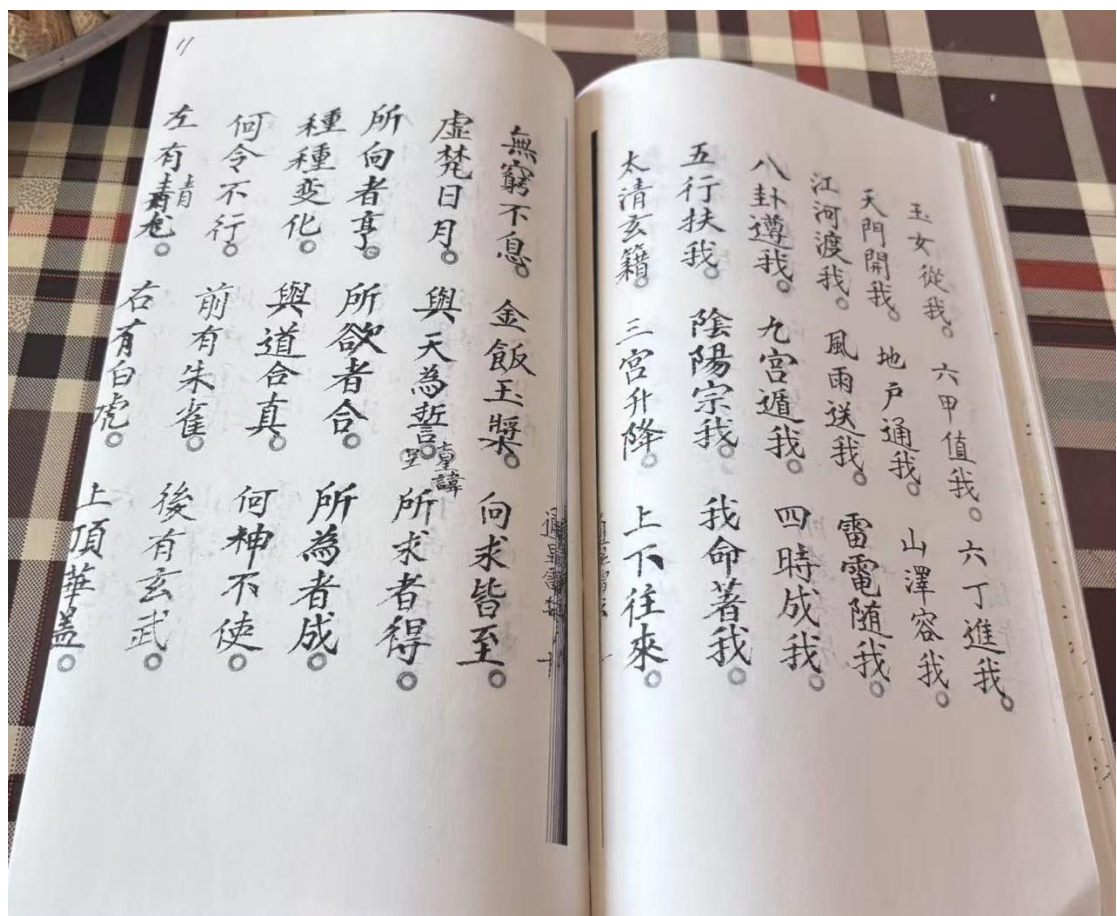 玉女從我。六甲值我。六丁進我。
天門開我。地户通我。山澤容我。
江河渡我。風雨送我。雷電随我。
八卦遵我。九宫遁我。四時成我。
五行扶我。陰陽宗我。我命著我。
太清玄籍。三宫升降。上下往來。
無窮不息。金飯玉漿。向求皆至。
虚梵日月。與天為誓。所求者得。
所向者亨。所欲者合。所為者成。
種種变化。與道合真。何神不使。
何令不行。前有朱雀。後有玄武。
左有青龙。右有白虎。上頂華盖。
11